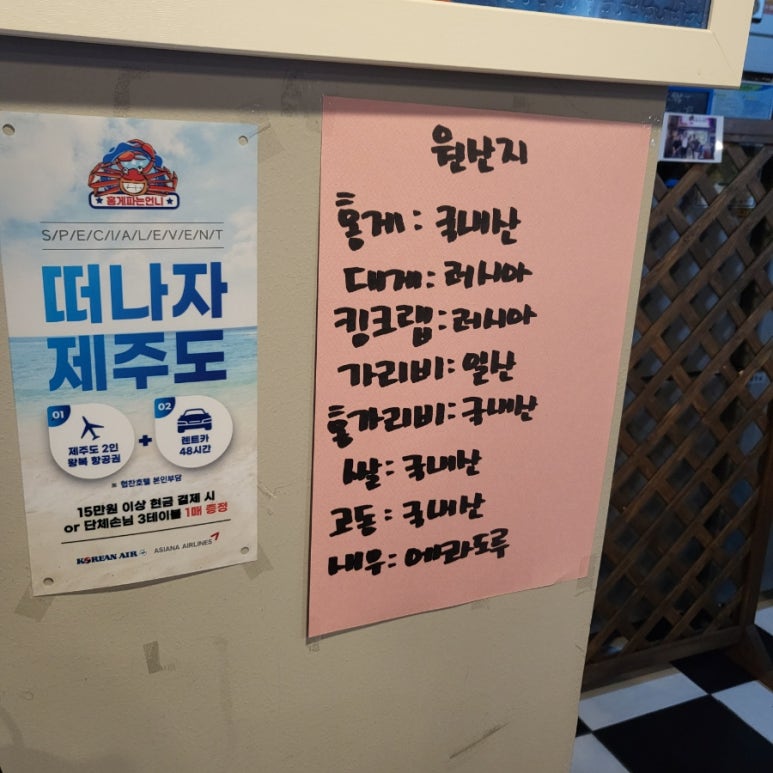 홍게파는언니
S/P/E/C/I/A/L/E/V/E/N/T
떠나자
제주도
01
제주도 2인
왕복 항공권
+
02
렌트카
48시간
※ 협찬호텔 본인부담
15만원 이상 현금 결제 시
or 단체손님 3테이블 1매 증정
KOREAN AIR
ASIANA AIRLINES
원산지
홍게: 국내산
대게: 러시아
킹크랩: 러시아
가리비: 일산
홍가리비: 국내산
쌀: 국내산
고동: 국내산
새우: 에콰도르